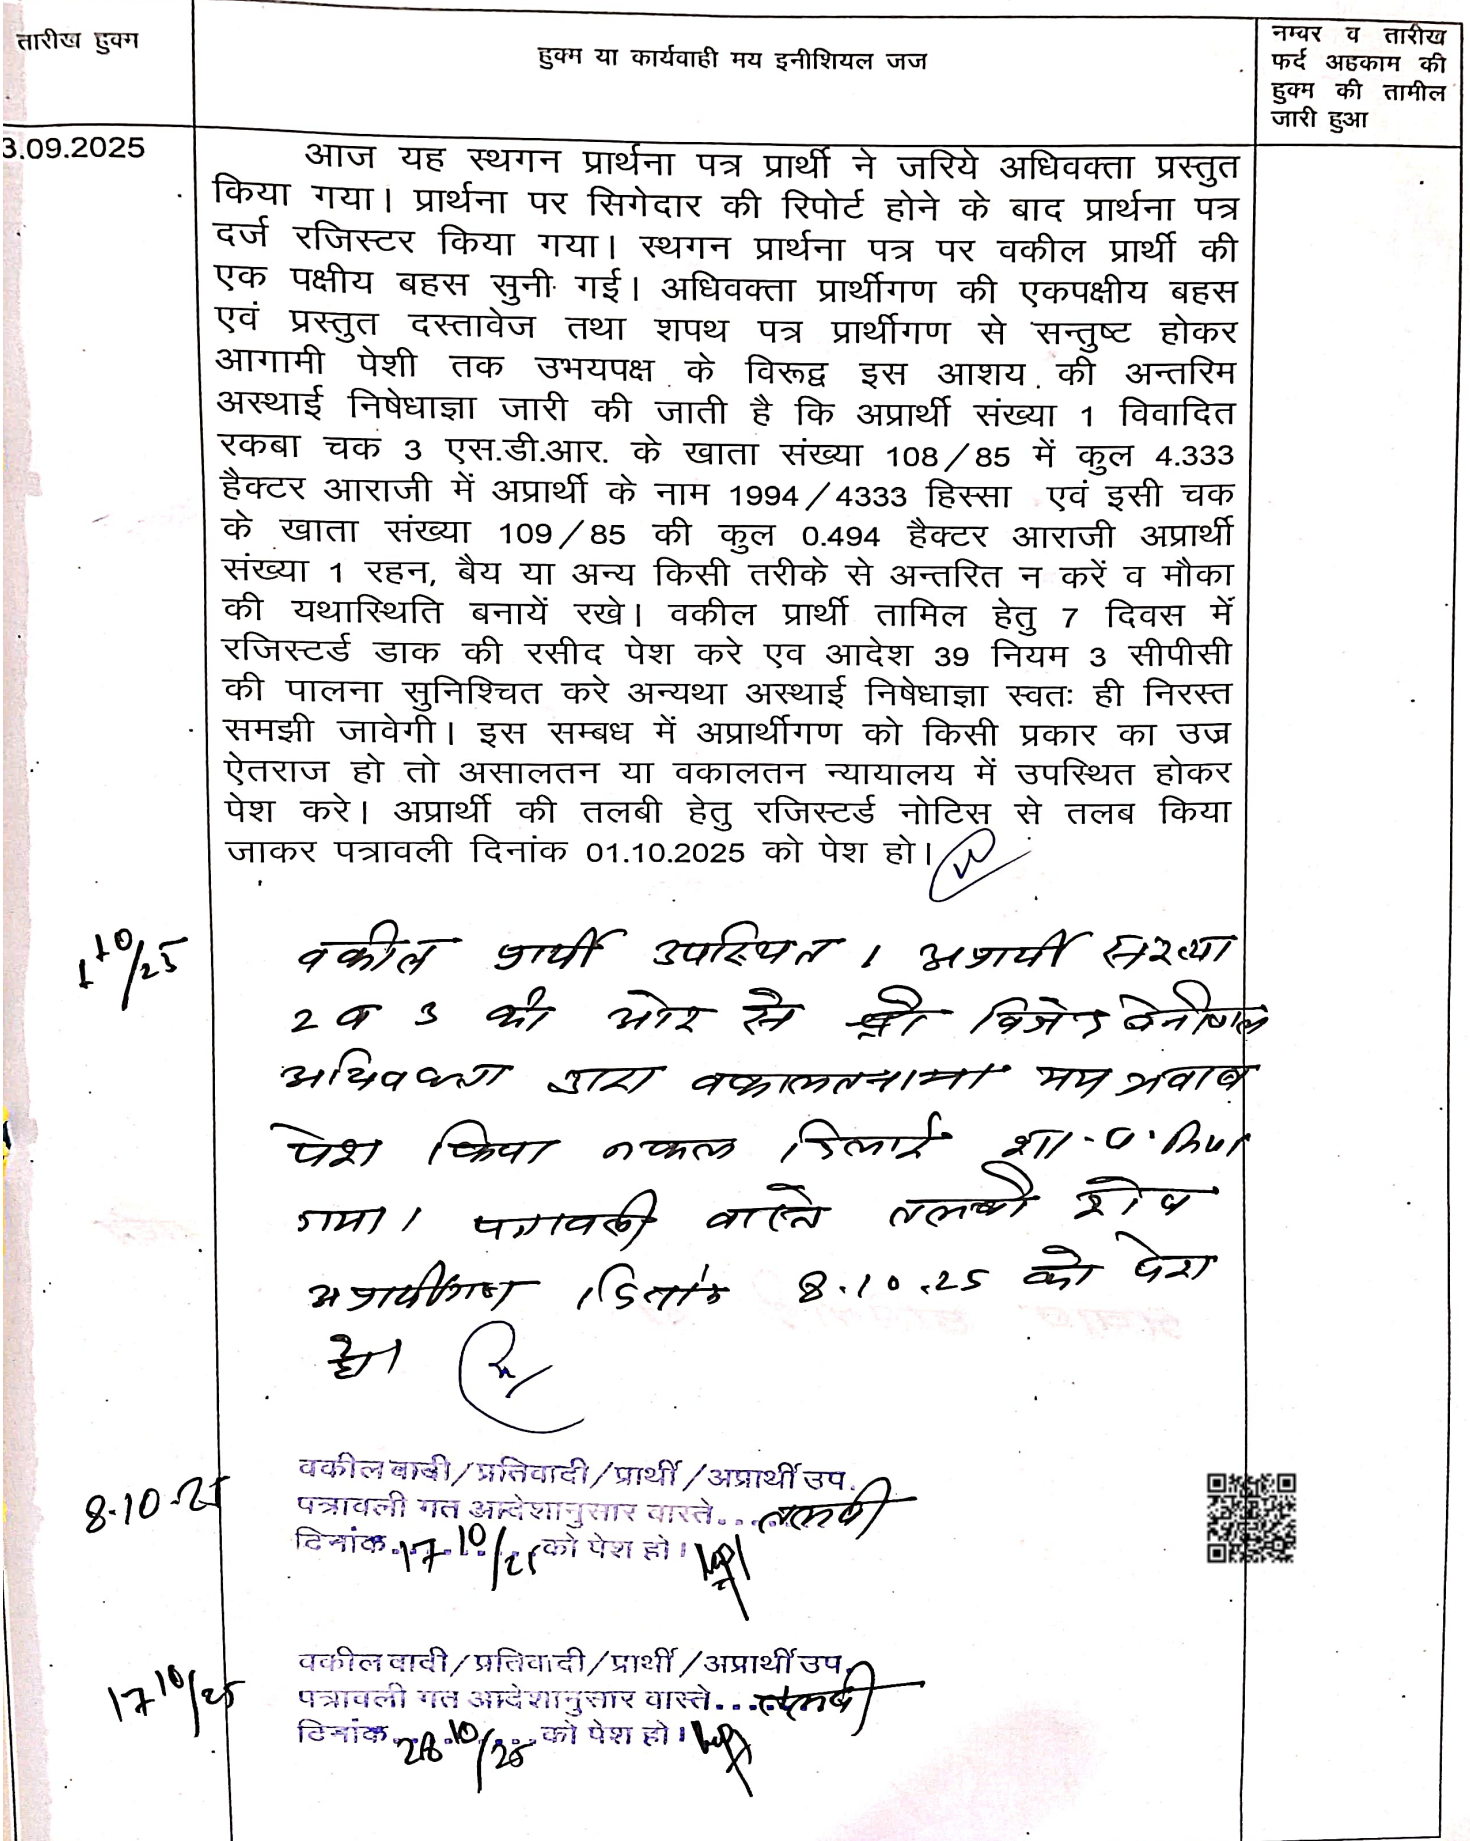 तारीख हुक्म
हुक्म या कार्यवाही मय इनीशियल जज
नम्बर व तारीख
फर्द अहकाम की
हुक्म की तामील
जारी हुआ
3.09.2025
आज यह स्थगन प्रार्थना पत्र प्रार्थी ने जरिये अधिवक्ता प्रस्तुत
किया गया। प्रार्थना पर सिगेदार की रिपोर्ट होने के बाद प्रार्थना पत्र
दर्ज रजिस्टर किया गया। स्थगन प्रार्थना पत्र पर वकील प्रार्थी की
एक पक्षीय बहस सुनी गई। अधिवक्ता प्रार्थीगण की एकपक्षीय बहस
एवं प्रस्तुत दस्तावेज तथा शपथ पत्र प्रार्थीगण से सन्तुष्ट होकर
आगामी पेशी तक उभयपक्ष के विरूद्व इस आशय की अन्तरिम
अस्थाई निषेधाज्ञा जारी की जाती है कि अप्रार्थी संख्या 1 विवादित
रकबा चक 3 एस.डी.आर. के खाता संख्या 108/85 में कुल 4.333
हैक्टर आराजी में अप्रार्थी के नाम 1994/4333 हिस्सा एवं इसी चक
के खाता संख्या 109/85 की कुल 0.494 हैक्टर आराजी अप्रार्थी
संख्या 1 रहन, बैय या अन्य किसी तरीके से अन्तरित न करें व मौका
की यथास्थिति बनायें रखे। वकील प्रार्थी तामिल हेतु 7 दिवस में
रजिस्टर्ड डाक की रसीद पेश करे एव आदेश 39 नियम 3 सीपीसी
की पालना सुनिश्चित करे अन्यथा अस्थाई निषेधाज्ञा स्वतः ही निरस्त
समझी जावेगी। इस सम्बध में अप्रार्थीगण को किसी प्रकार का उज्र
ऐतराज हो तो असालतन या वकालतन न्यायालय में उपस्थित होकर
पेश करे। अप्रार्थी की तलबी हेतु रजिस्टर्ड नोटिस से तलब किया
जाकर पत्रावली दिनांक 01.10.2025 को पेश हो।
1 10/25
वकील प्रार्थी उपस्थित। अप्रार्थी संख्या
2 व 3 की ओर से श्री विजेन्द्र बेनीवाल
अधिवक्ता द्वारा वकालतनामा मय जवाब
पेश किया नकल दिलाई शा.प. किया
गया। पत्रावली वास्ते तलबी शेष
अप्रार्थीगण दिनांक 8.10.25 को पेश
हो।
8.10.25
वकील वादी/प्रतिवादी/प्रार्थी/अप्रार्थी उप.
पत्रावली गत आदेशानुसार वास्ते...... तलबी
दिनांक. 17 10/25 को पेश हो।
17 10/25
वकील वादी/प्रतिवादी/प्रार्थी/अप्रार्थी उप.
पत्रावली गत आदेशानुसार वास्ते...... तलबी
दिनांक. 28 10/25 को पेश हो।